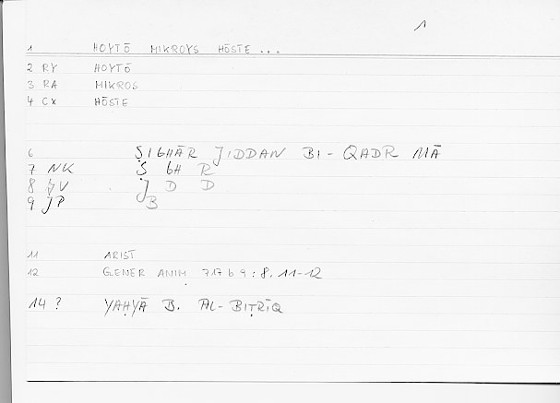 1
1 HOYTŌ MIKROYS HŌSTE ...
2 RY HOYTŌ
3 RA MIKROS
4 CX HŌSTE
6 ṢIGHĀR JIDDAN BI - QADR MĀ
7 NK Ṣ GH R
8 JV J D D
9 JP B
11 ARIST
12 GENER ANIM 717 b 9 : 8. 11-12
14 ? YAḤYĀ B. AL - BIṬRĪQ